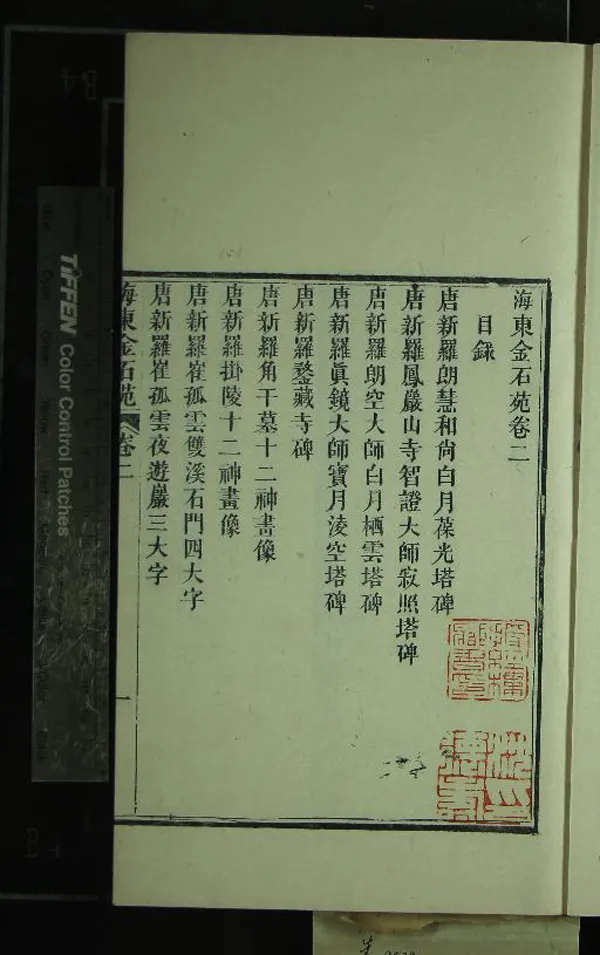 海東金石苑卷二
目錄
唐新羅朗慧和尚白月葆光塔碑
唐新羅鳳巖山寺智證大師寂照塔碑
唐新羅朗空大師白月栖雲塔碑
唐新羅眞鏡大師寶月淩空塔碑
唐新羅鍪藏寺碑
唐新羅角干墓十二神畫像
唐新羅掛陵十二神畫像
唐新羅崔孤雲雙溪石門四大字
唐新羅崔孤雲夜遊巖三大字
海東金石苑 卷二
一
TIFFEN Color Control Patches
B4